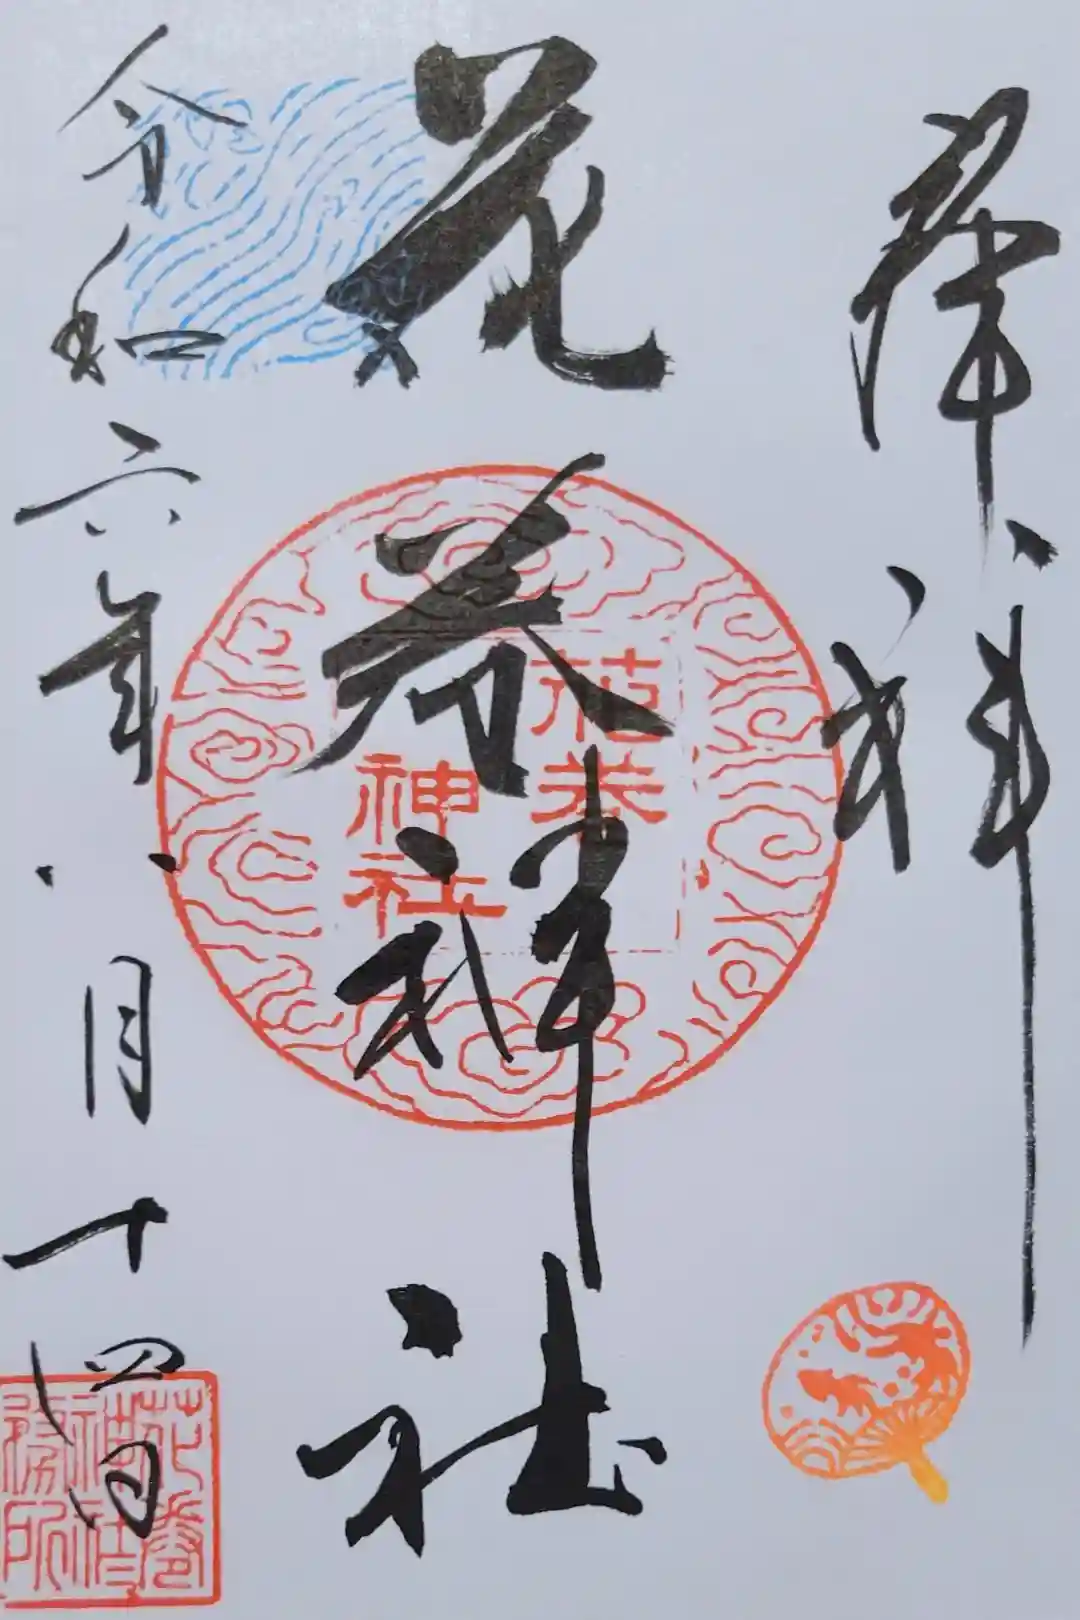 奉拝
花巻神社
花巻
神社
令和六年八月十四日
花巻
神社
務所